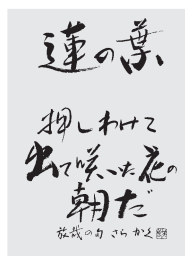 蓮の葉
押しわけて
出て咲いた花の
朝だ
放哉の句 さらかく